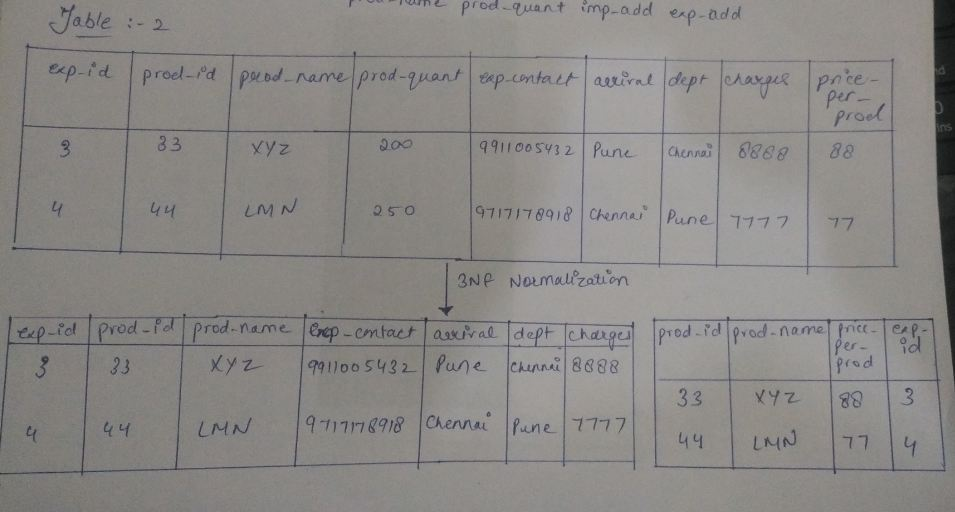 prod-name prod-quant imp-add exp-add
Table :- 2
exp-id prod-id prod-name prod-quant exp-contact arrival dept charges price-
per-
prod
3 33 XYZ 200 9911005432 Pune Chennai 8888 88
4 44 LMN 250 9717178918 Chennai Pune 7777 77
3NF Normalization
exp-id prod-id prod-name exp-contact arrival dept charges
3 33 XYZ 9911005432 Pune Chennai 8888
4 44 LMN 9717178918 Chennai Pune 7777
prod-id prod-name price-
per-
prod exp-
id
33 XYZ 88 3
44 LMN 77 4